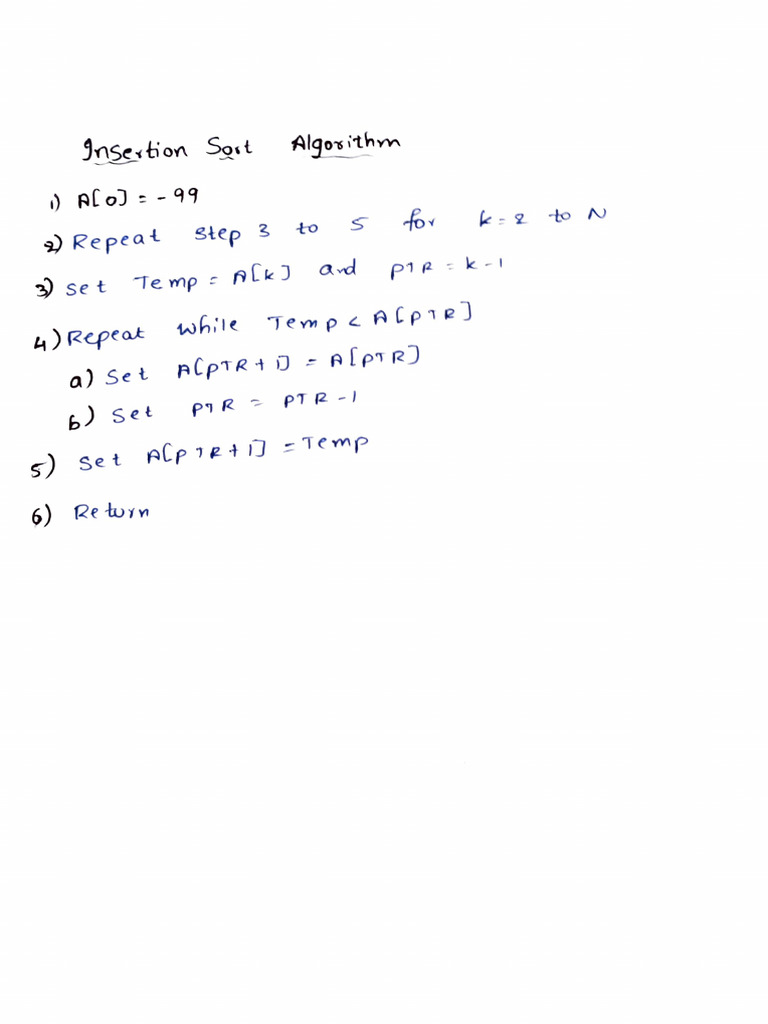 Insertion Sort Algorithm
1) A[0] = -99
2) Repeat Step 3 to 5 for k = 2 to N
3) Set Temp = A[k] and PTR = k-1
4) Repeat while Temp < A[PTR]
a) Set A[PTR+1] = A[PTR]
b) Set PTR = PTR-1
5) Set A[PTR+1] = Temp
6) Return